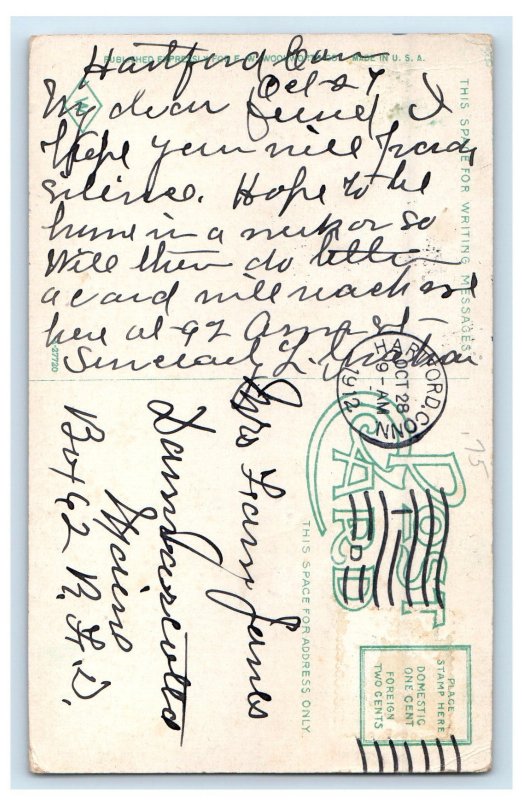 PUBLISHED EXPRESSLY FOR F. W. WOOLWORTH CO. MADE IN U. S. A.
Hartford Conn
Oct 27
My dear friend I
hope you will pardon
silence. Hope to be
home in a week or so
Will then do better
a card will reach me
here at 92 Ann st
Sincerely L.
THIS SPACE FOR WRITING MESSAGES
27720
HARTFORD, CONN
OCT 28
9-AM
1912
.75
POST CARD
PLACE
STAMP HERE
DOMESTIC
ONE CENT
FOREIGN
TWO CENTS
THIS SPACE FOR ADDRESS ONLY.
Mrs Jones
Damariscotta
Maine
Box 92 R. F. D.